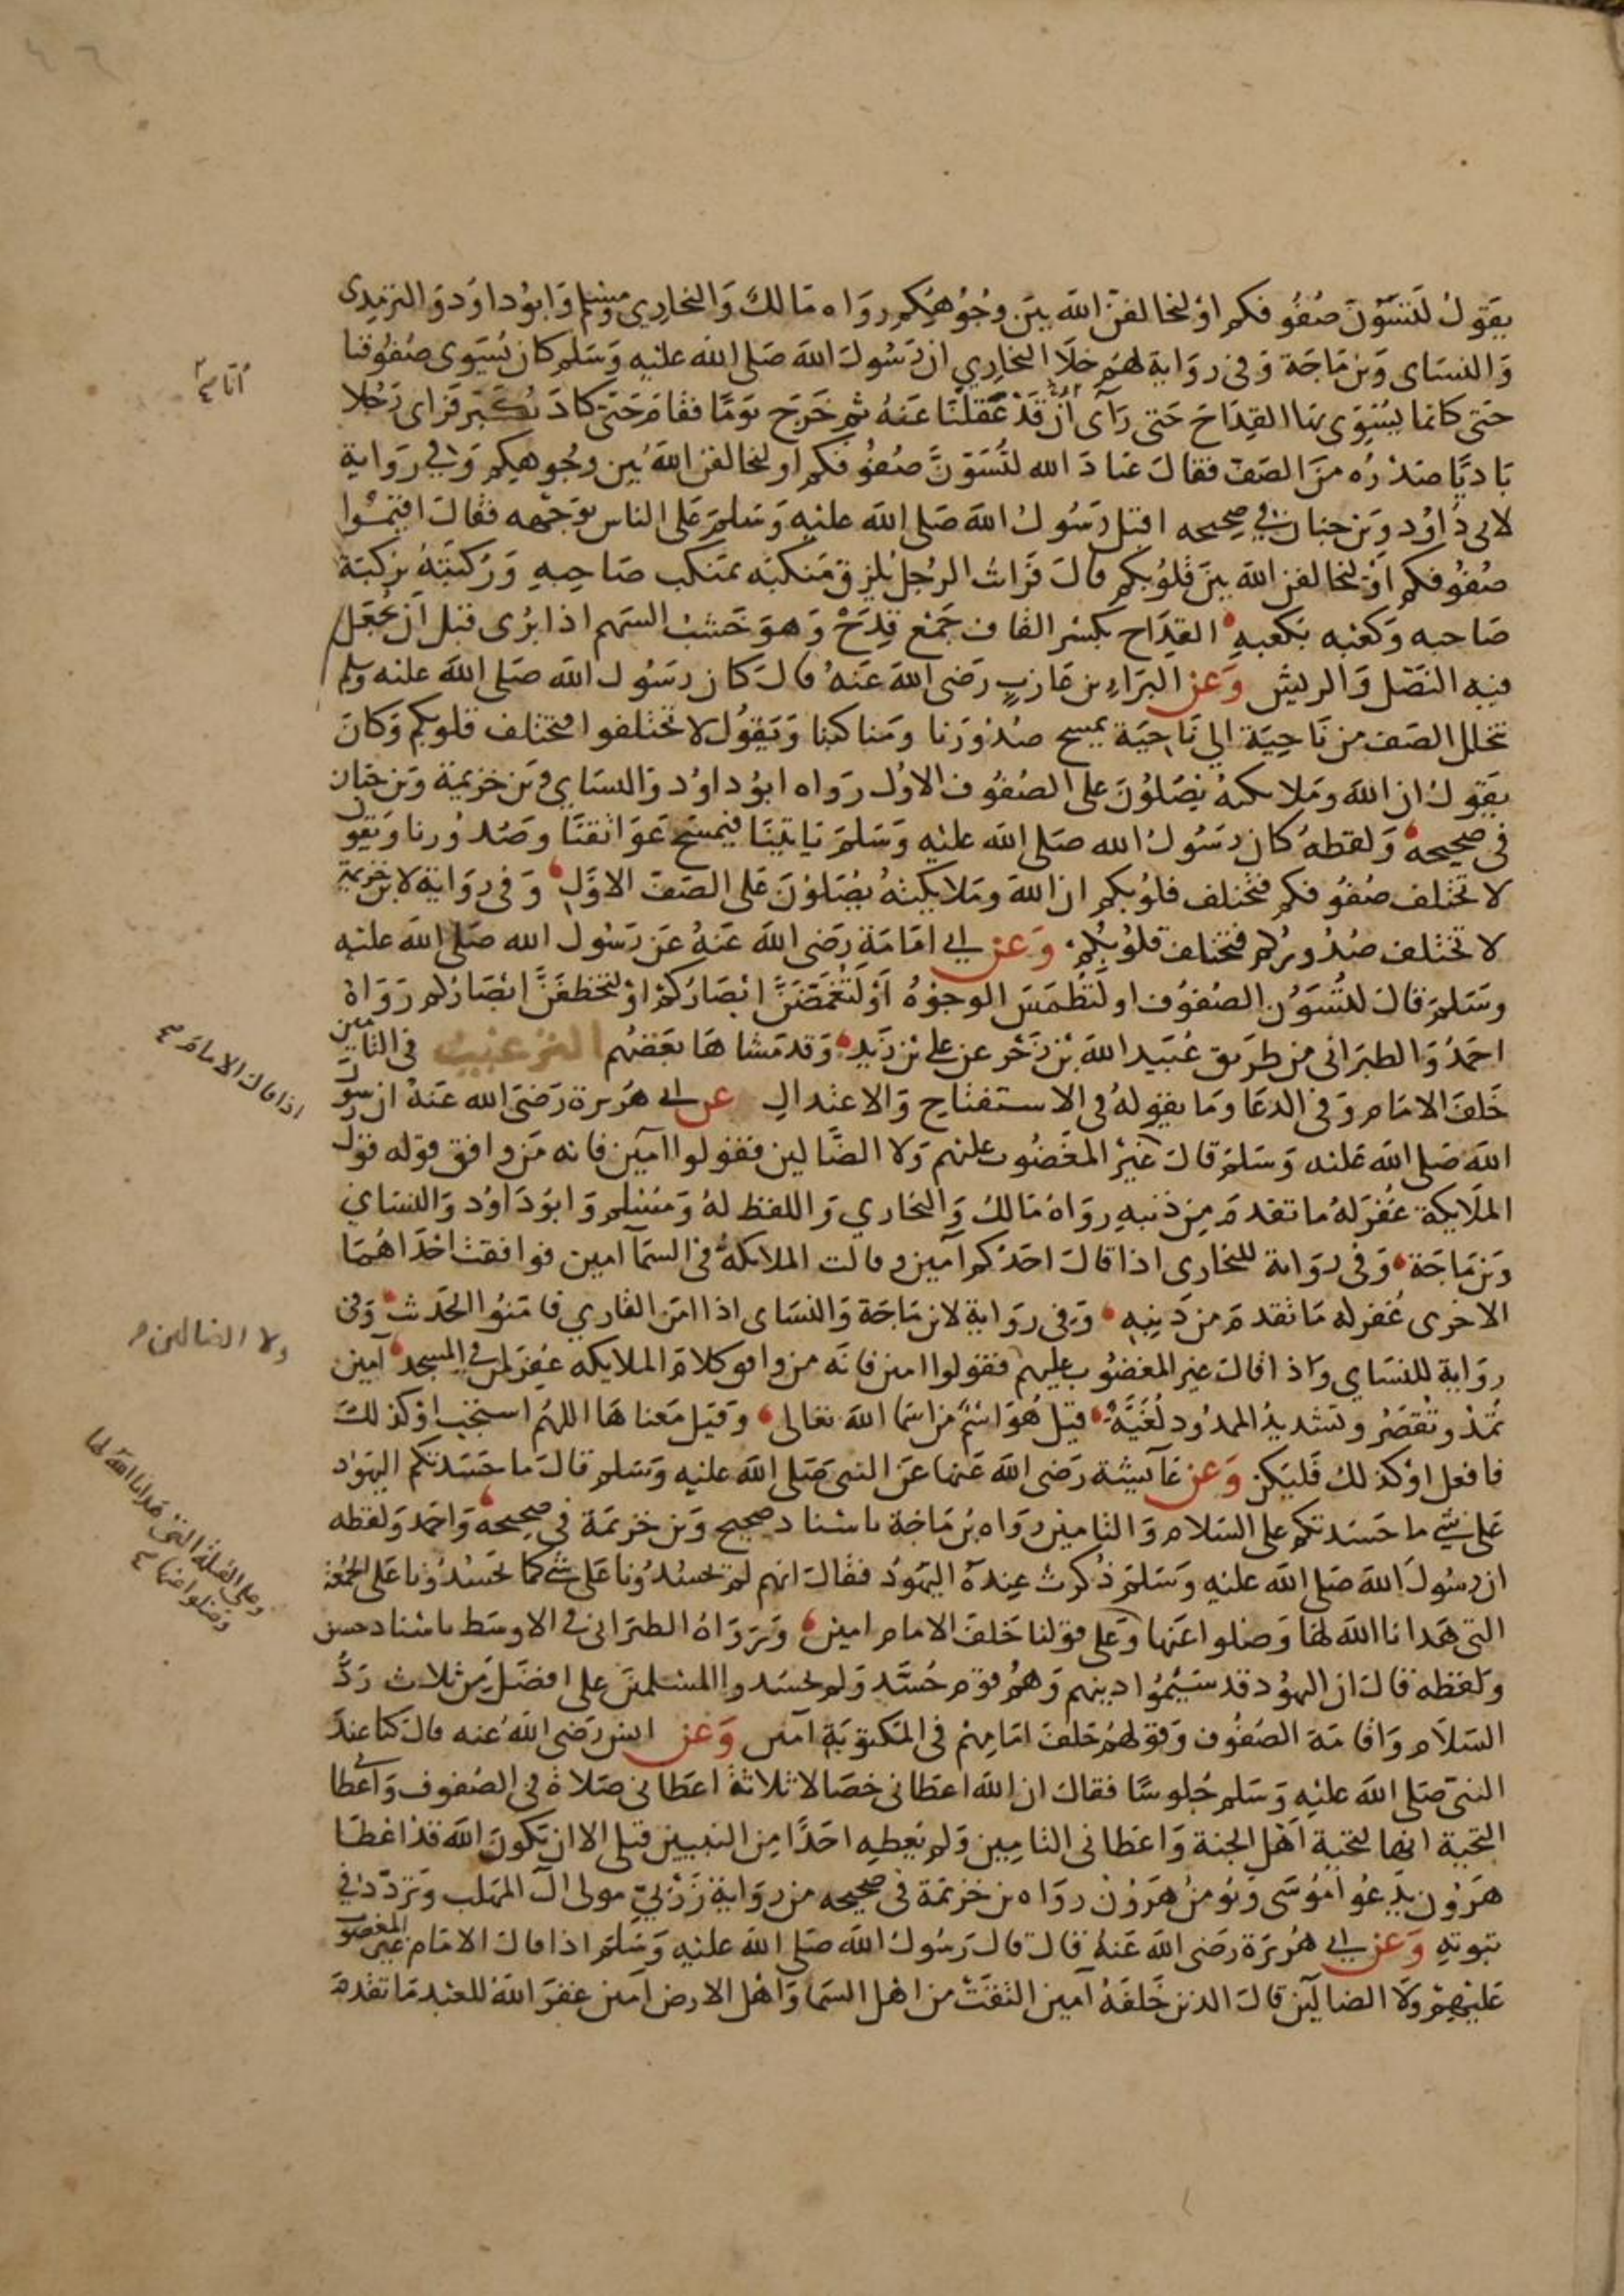 يقول لتسون صفوفكم او ليخالفن الله بين وجوهكم رواه مالك والبخاري ومسلم وابوداود والترمذى
والنساى وبن ماجة وفى رواية لهم خلا البخاري ان رسول الله صلى الله عليه وسلم كان يسوى صفوفنا
حتى كانما يسوى بها القداح حتى رآى أن قد عقلنا عنه ثم خرج يوما فقام حتى كاد يكبر فراى رجلا
باديا صدره من الصف فقال عباد الله لتسون صفوفكم او ليخالفن الله بين وجوهكم وفي رواية
لابى داود وبن حبان في صحيحه اقبل رسول الله صلى الله عليه وسلم على الناس بوجهه فقال اقيموا
صفوفكم او ليخالفن الله بين قلوبكم قال فرات الرجل يلزق منكبه بمنكب صاحبه وركبته بركبة
صاحبه وكعبه بكعبه القداح بكسر القاف جمع قدح وهو خشب السهم اذا برى قبل ان يجعل
فيه النصل والريش وعن البراء بن عازب رضى الله عنه قال كان رسول الله صلى الله عليه وسلم
تخلل الصف من ناحية الي ناحية يمسح صدورنا ومناكبنا ويقول لا تختلفوا فتختلف قلوبكم وكان
يقول ان الله وملائكته يصلون على الصفوف الاول رواه ابوداود والنساي وبن خزيمة وبن حبان
فى صحيحه ولفظه كان رسول الله صلى الله عليه وسلم ياتينا فيمسح عواتقنا وصدورنا ويقول
لا تختلف صفوفكم فتختلف قلوبكم ان الله وملايكته يصلون على الصف الاول وفى رواية لابن خزيمة
لا تختلف صدوركم فتختلف قلوبكم وعن ابي امامة رضى الله عنه عن رسول الله صلى الله عليه
وسلم قال لتسون الصفوف او لتطمس الوجوه او لتغمضن ابصاركم او لتخطفن ابصاركم رواه
احمد والطبرانى من طريق عبيد الله بن زحر عن على بن زيد وقد مشاها بعضهم الترغيب فى التامين
خلف الامام وفى الدعا وما يقوله فى الاستفتاح والاعتدال عن ابي هريرة رضى الله عنه ان رسول
الله صلى الله عليه وسلم قال غير المغضوب عليهم ولا الضالين فقولوا آمين فانه من وافق قوله قول
الملايكة غفر له ما تقدم من ذنبه رواه مالك والبخاري واللفظ له ومسلم وابوداود والنساي
وبن ماجة وفى رواية للبخارى اذا قال احدكم آمين وقالت الملائكة فى السمآ آمين فوافقت احداهما
الاخرى غفر له ما تقدم من ذنبه وفى رواية لابن ماجة والنساى اذا امن القاري فامنوا الحديث وفى
رواية للنساي واذا قال غير المغضوب عليهم فقولوا امين فانه من وافق كلامه الملايكه غفر لمن في المسجد آمين
تمد وتقصر وتشديد الممدود لغية قيل هو اسم من اسما الله تعالى وقيل معناها اللهم استجب او كذلك
فافعل او كذلك فليكن وعن عآيشة رضى الله عنها عن النبى صلى الله عليه وسلم قال ما حسدتكم اليهود
على شي ما حسدتكم على السلام والتامين رواه بن ماجة باسناد صحيح وبن خزيمة فى صحيحه واحمد ولفظه
ان رسول الله صلى الله عليه وسلم ذكرت عنده اليهود فقال انهم لم يحسدونا على شي كما حسدونا على الجمعة
التى هدانا الله لها وضلوا عنها وعلى قولنا خلف الامام امين ورواه الطبرانى في الاوسط باسناد حسن
ولفظه قال ان اليهود قد سيموا دينهم وهم قوم حسد ولم يحسدوا المسلمين على افضل من ثلاث رد
السلام واقامة الصفوف وقولهم خلف امامهم فى المكتوبة آمين وعن انس رضى الله عنه قال كنا عند
النبى صلى الله عليه وسلم جلوسا فقال ان الله اعطانى خصالا ثلاثة اعطانى صلاة فى الصفوف واعطانى
التحية انها لتحية اهل الجنة واعطانى التامين ولم يعطه احدا من النبيين قبلى الا ان يكون الله قد اعطا
هرون يدعوا موسى ويومن هرون رواه بن خزيمة فى صحيحه من رواية زربي مولى ال المهلب وتردد في
ثبوته وعن ابي هريرة رضى الله عنه قال قال رسول الله صلى الله عليه وسلم اذا قال الامام غير المغضوب
عليهم ولا الضالين قال الذين خلفه آمين التفت من اهل السما واهل الارض آمين غفر الله للعبد ما تقدم
أنا
اذا قال الامام
ولا الضالين
وعلى القبلة التى هدانا الله لها
وضلوا عنها